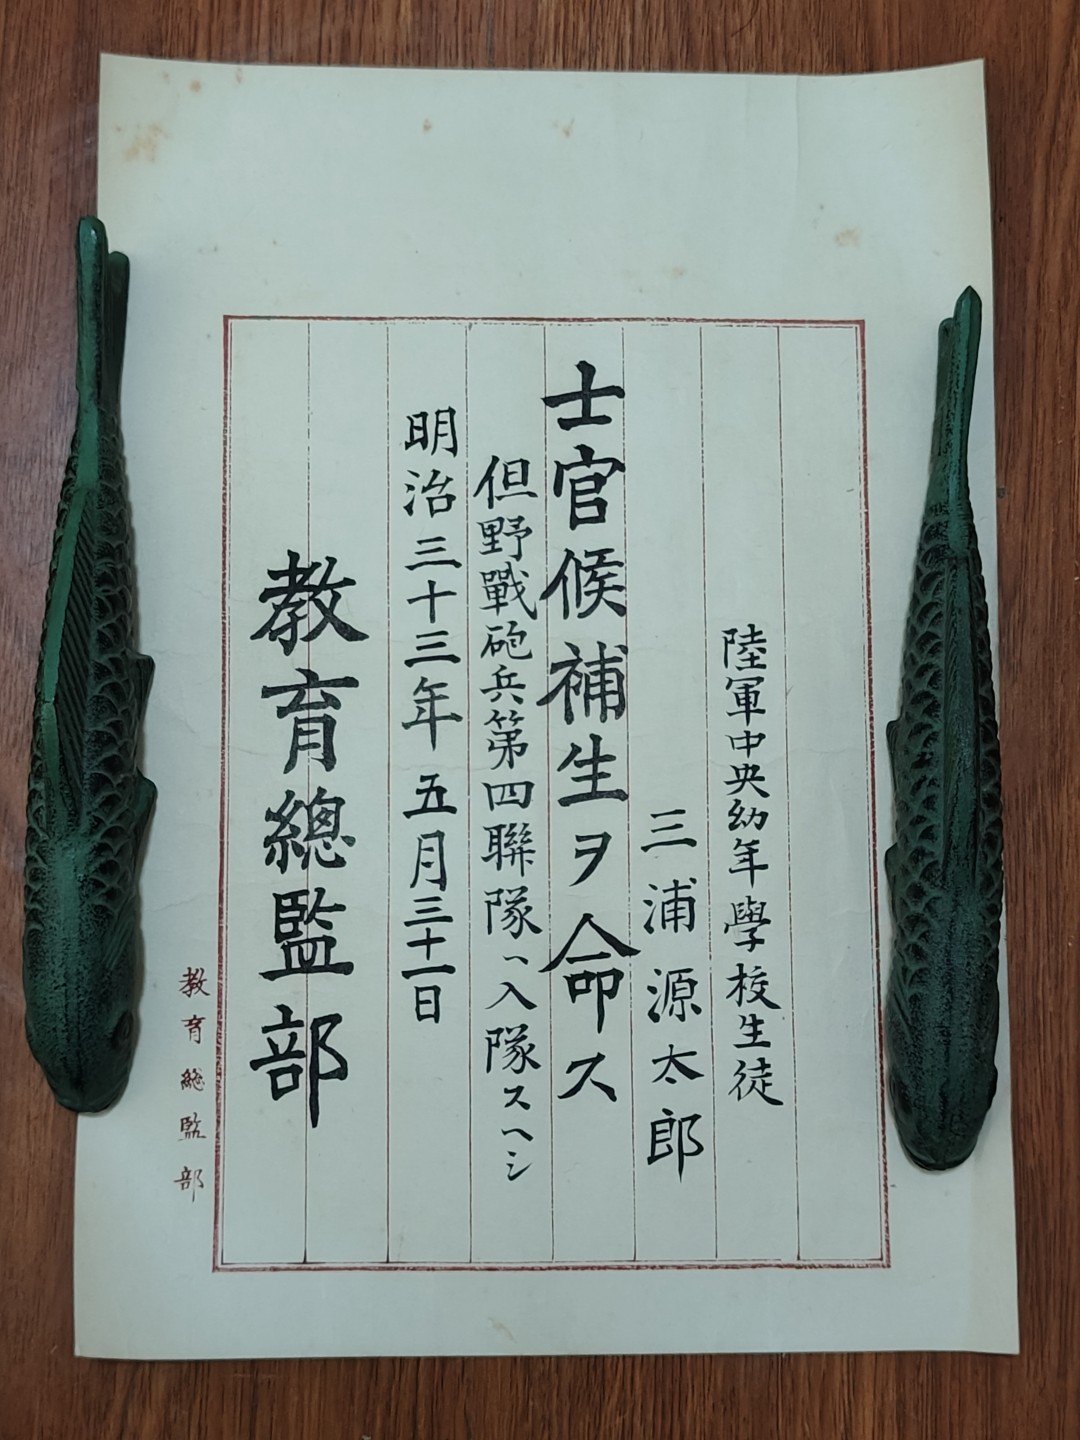 陸軍中央幼年學校生徒
三浦源太郎
士官候補生ヲ命ス
但野戰砲兵第四聯隊ヘ入隊スヘシ
明治三十三年五月三十一日
教育總監部
教育總監部